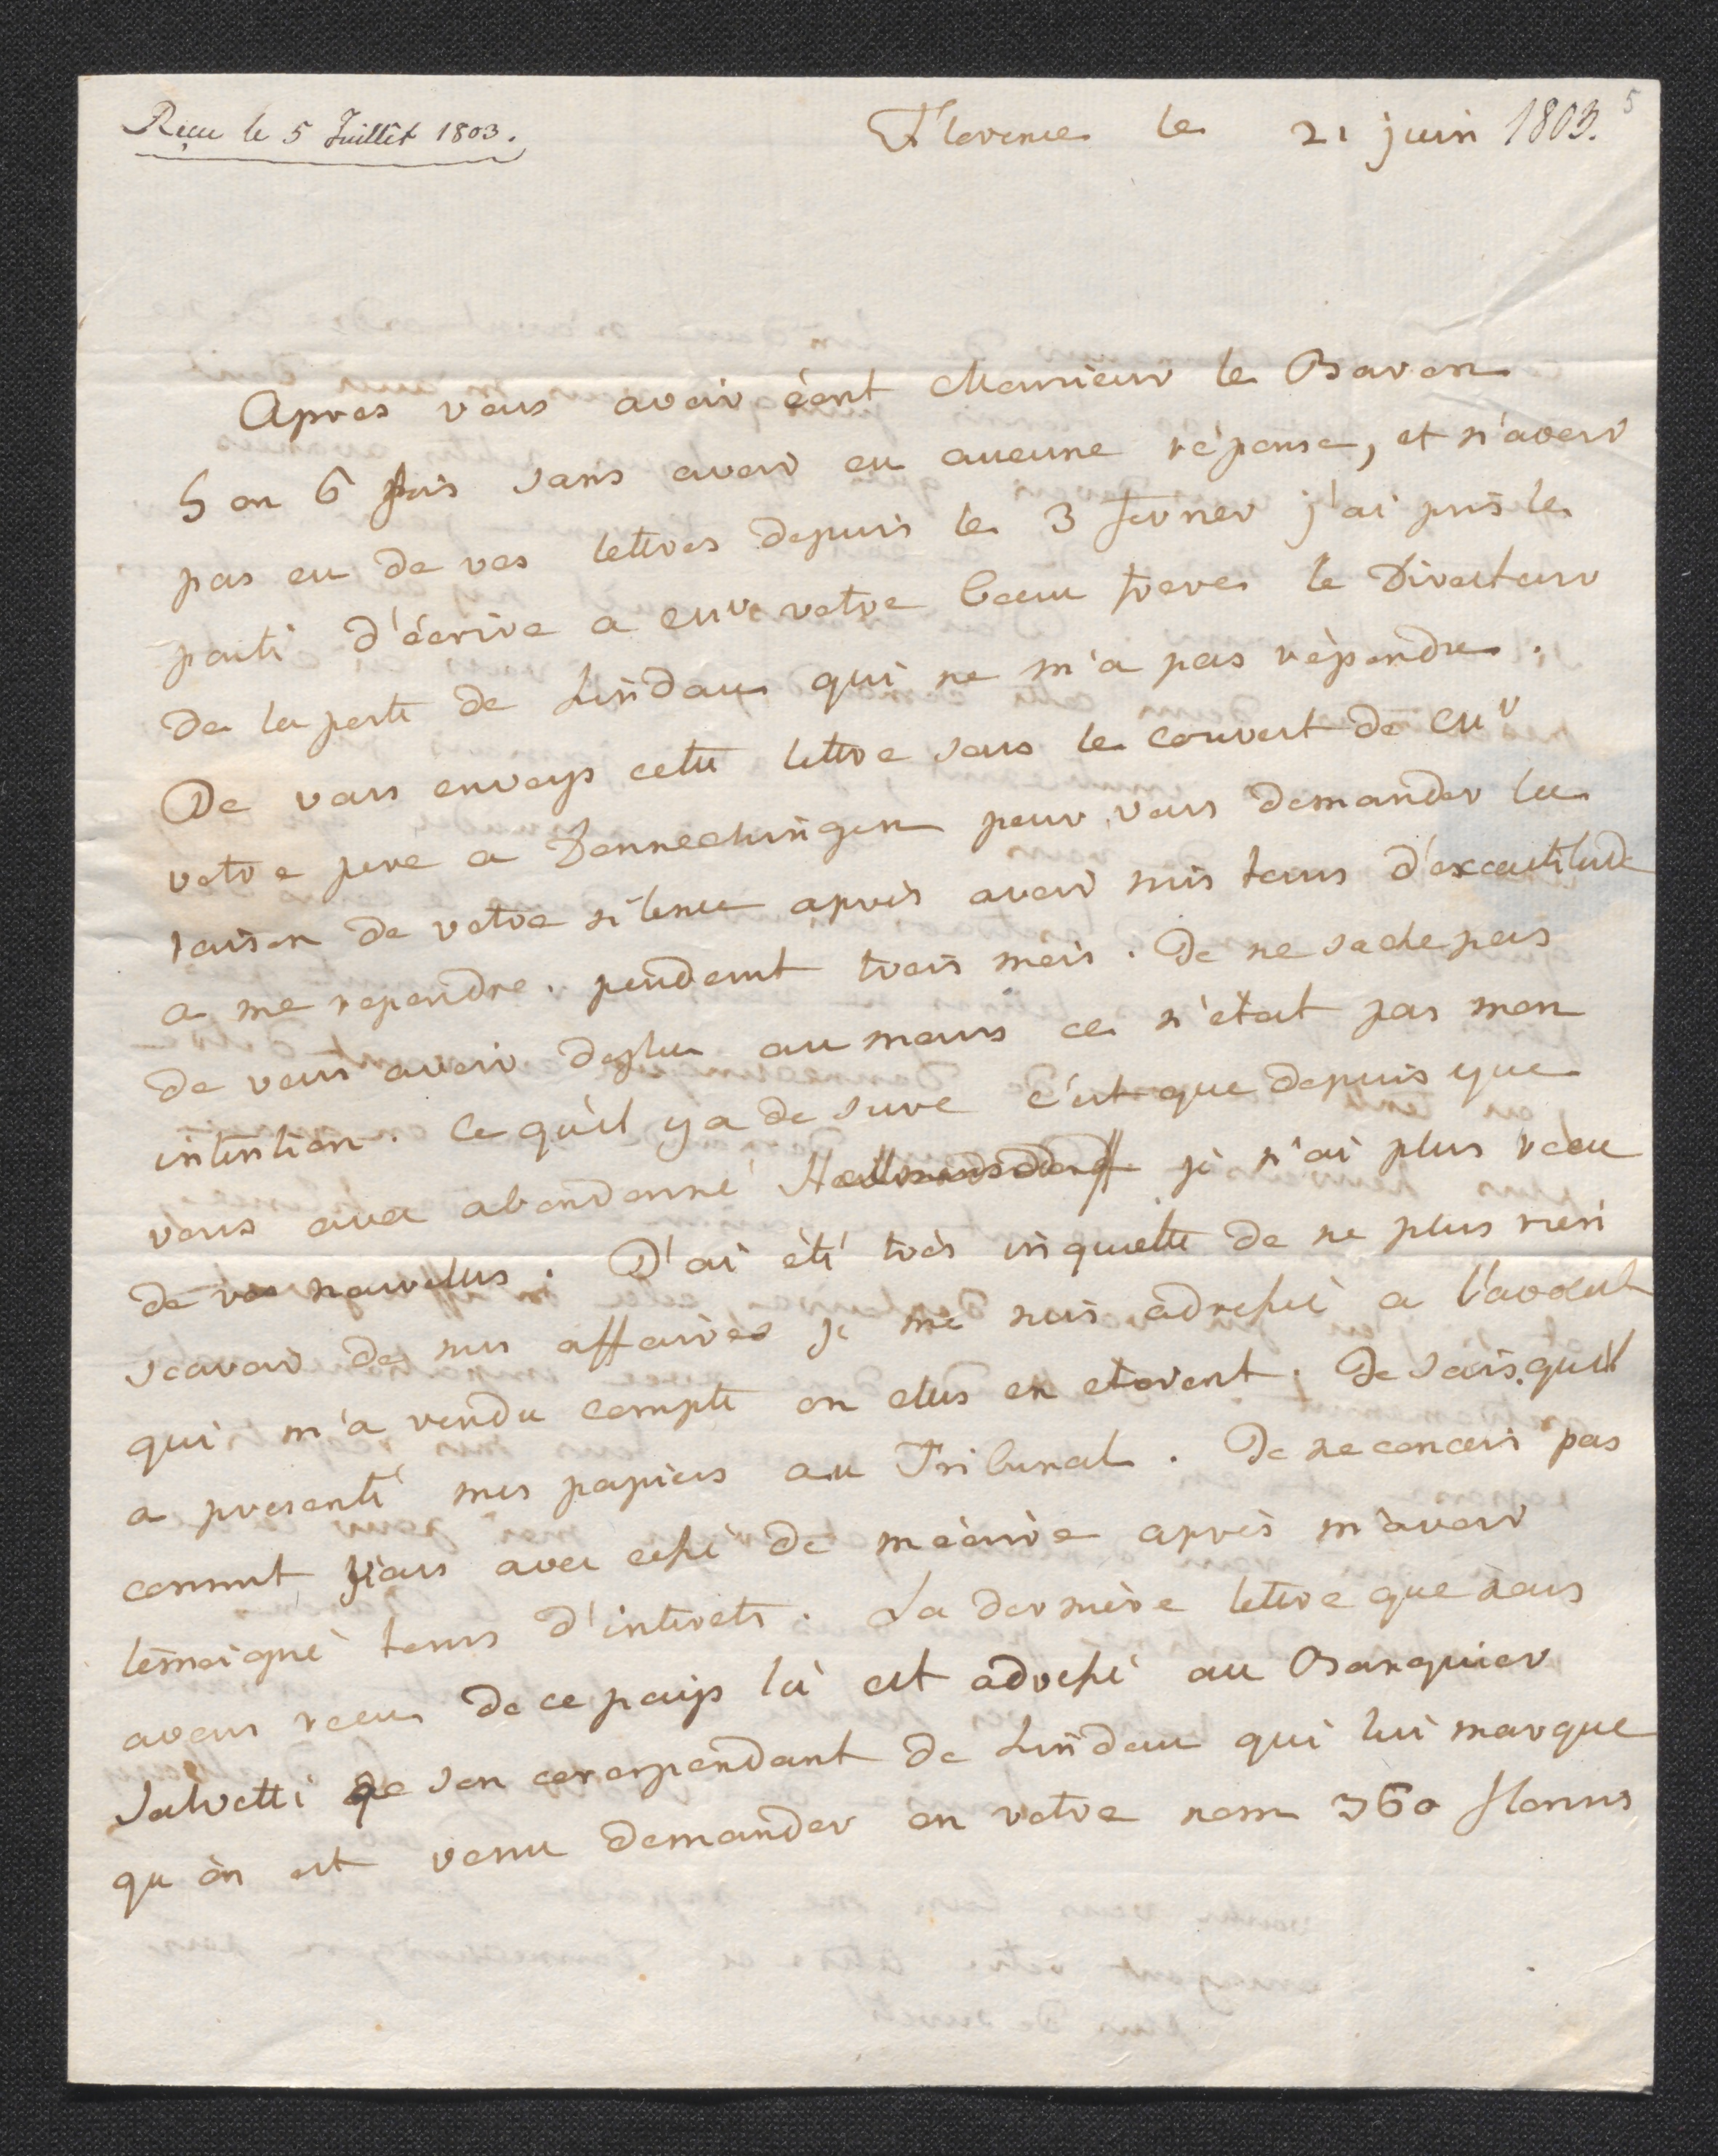 Reçu le 5 Juillet 1803.
Florence le 21 juin 1803. 5
Apres vous avoir écrit Monsieur le Baron
5 ou 6 fois sans avoir eu aucune réponse, et n'avoir
pas eu de vos lettres depuis le 3 fevrier j'ai pris le
parti d'écrire a Mr votre beau frere le Directeur
de la poste de Lindau qui ne m'a pas répondu.
Je vous envoys cette lettre sous le couvert de Mr
votre pere a Donneschingen pour vous demander la
raison de votre silence après avoir mis tans d'exactitude
a me repondre. pendant trois mois. Je ne sache pas
de vous avoir deplu au moins ce n'était pas mon
intention. Ce qu'il y a de sure c'est que depuis que
vous avez abandonné je n'ai plus recu
de vos nouvelles. J'ai été très inquiette de ne plus rien
scavoir de mes affaires je me suis adressé a l'avocat
qui m'a rendu compte ou elles en etoient. Je sais quil
a presenté mes papiers au Tribunal. Je ne concois pas
comment vous avez cessé de m'écrire après m'avoir
témoigné tans d'interets. La dernière lettre que nous
avons recu de ce pays là est adressé au Banquier
Salvetti de son corespondant de Lindau qui lui marque
qu'on est venu demander en votre nom 360 florins